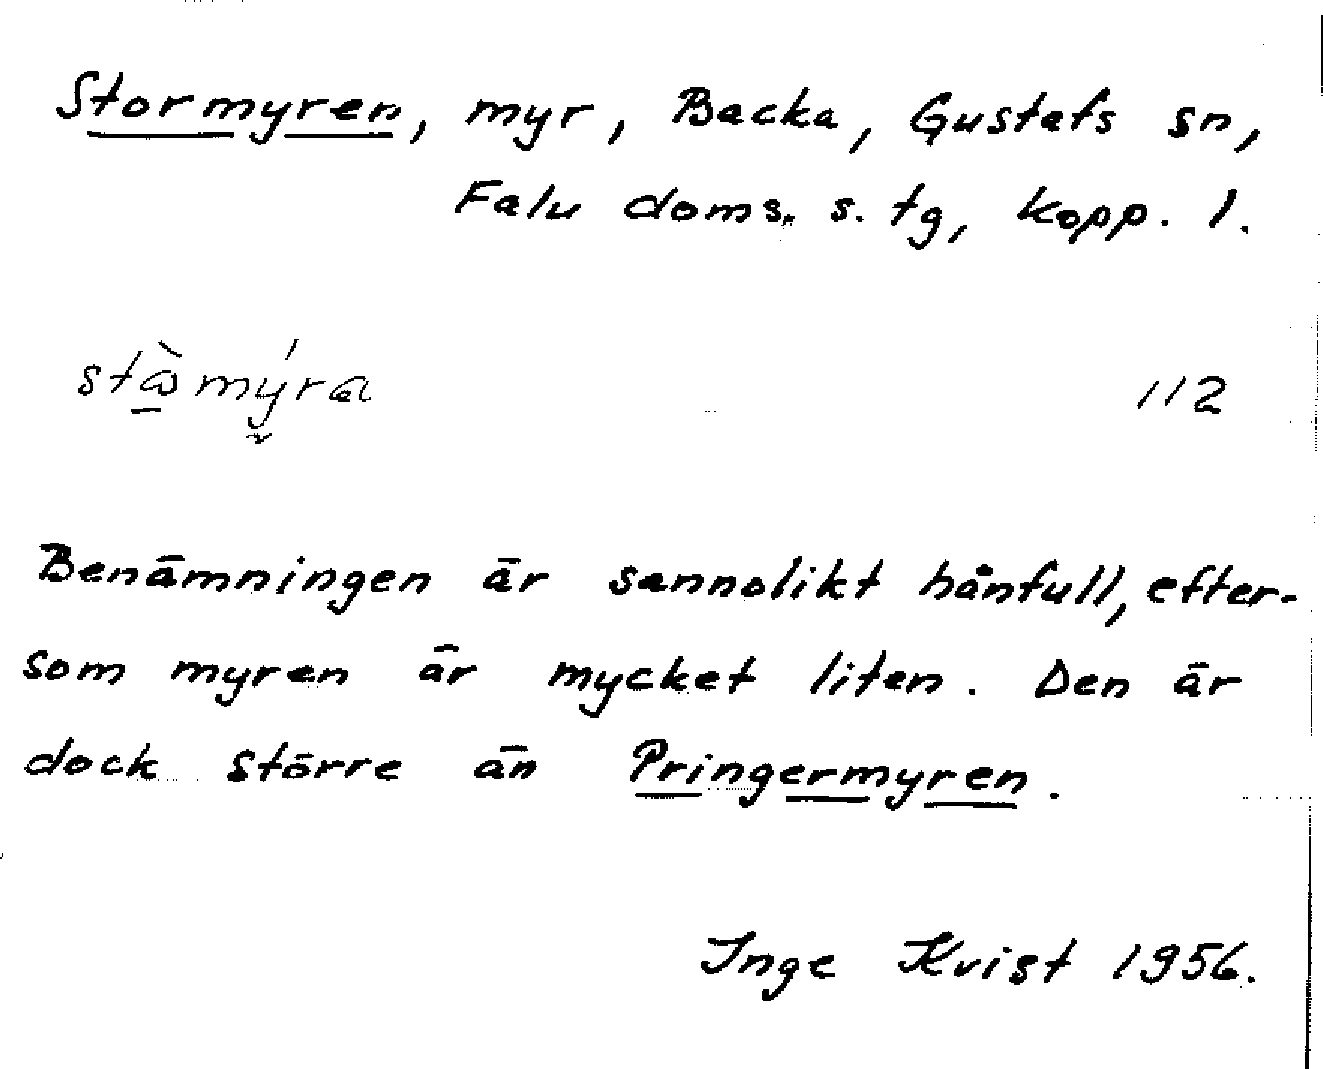 Stormyren, myr, Backa, Gustafs sn,
Falu doms. s. tg, Kopp. l.
112
Benämningen är sannolikt hånfull, efter-
som myren är mycket liten. Den är
dock större än Pringermyren.
Inge Kvist 1956.